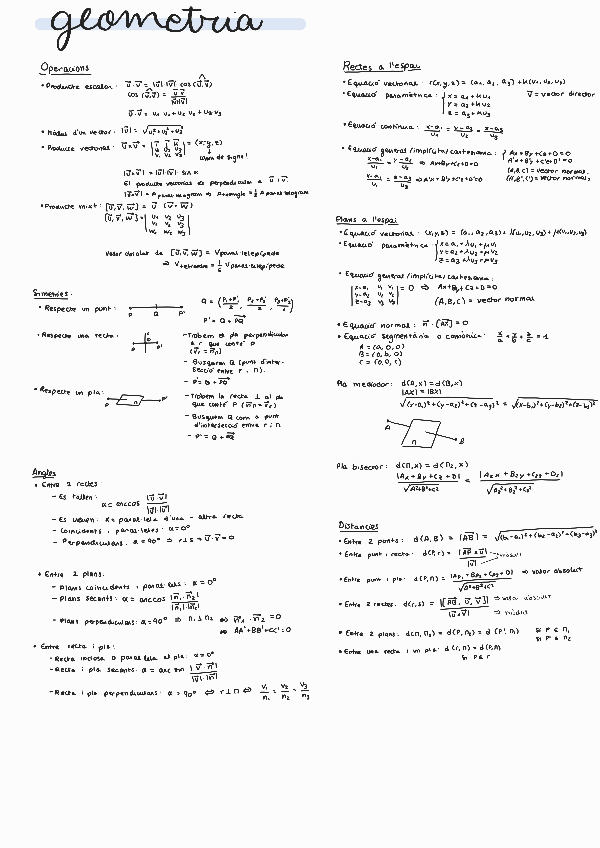 geometria
Operacions
• Producte escalar: u⃗·v⃗ = |u⃗|·|v⃗| cos(u⃗,v⃗)
cos(u⃗,v⃗) = u⃗·v⃗ / |u⃗||v⃗|
u⃗·v⃗ = u₁v₁ + u₂v₂ + u₃v₃
• Mòdul d'un vector: |u⃗| = √(u₁² + u₂² + u₃²)
• Producte vectorial: u⃗×v⃗ = |i j k; u₁ u₂ u₃; v₁ v₂ v₃| = (x,-y,z)
canvi de signe!
|u⃗×v⃗| = |u⃗|·|v⃗| sin α
El producte vectorial és perpendicular a u⃗ i v⃗.
|u⃗×v⃗| = A paral·lelogram ⇒ A triangle = 1/2 A paral·lelogram
• Producte mixt: [u⃗,v⃗,w⃗] = u⃗·(v⃗×w⃗)
[u⃗,v⃗,w⃗] = |u₁ u₂ u₃; v₁ v₂ v₃; w₁ w₂ w₃|
Valor absolut de [u⃗,v⃗,w⃗] = V paral·lelepípede
⇒ V tetraedre = 1/6 V paral·lelepípede
Simetries:
• Respecte un punt:
P Q P'
Q = (p₁+p₁'/2, p₂+p₂'/2, p₃+p₃'/2)
P' = Q + PQ⃗
• Respecte una recta:
- Trobem el pla perpendicular
a r que conté P
(v⃗r = n⃗π)
- Busquem Q (punt d'inter-
secció entre r i π).
- P' = Q + PQ⃗
• Respecte un pla:
- Trobem la recta ⊥ al pla
que conté P (n⃗π = v⃗r)
- Busquem Q com a punt
d'intersecció entre r i π
- P' = Q + PQ⃗
Angles
• Entre 2 rectes:
- Es tallen: α = arccos |u⃗·v⃗| / |u⃗|·|v⃗|
- Coincidents i paral·leles: α = 0º
- Perpendiculars: α = 90º ⇒ r⊥s ⇒ u⃗·v⃗ = 0
• Entre 2 plans:
- Plans coincidents i paral·lels: α = 0º
- Plans secants: α = arccos |n⃗₁·n⃗₂| / |n⃗₁|·|n⃗₂|
- Plans perpendiculars: α = 90º ⇒ π₁⊥π₂ ⇔ n⃗₁·n⃗₂ = 0
⇔ AA' + BB' + CC' = 0
• Entre recta i pla:
- Recta inclosa o paral·lela al pla: α = 0º
- Recta i pla secants: α = arcsin |v⃗·n⃗| / |v⃗|·|n⃗|
- Recta i pla perpendiculars: α = 90º ⇔ r⊥π ⇔ v₁/n₁ = v₂/n₂ = v₃/n₃
Rectes a l'espai
• Equació vectorial: r(x,y,z) = (a₁, a₂, a₃) + k(v₁, v₂, v₃)
• Equació paramètrica: { x = a₁ + k v₁ v⃗ = vector director
y = a₂ + k v₂
z = a₃ + k v₃
• Equació contínua: x-a₁/v₁ = y-a₂/v₂ = z-a₃/v₃
• Equació general/implícita/cartesiana: { Ax+By+Cz+D=0
A'x+B'y+C'z+D'=0
x-a₁/v₁ = y-a₂/v₂ ⇒ Ax+By+Cz+D=0
(A,B,C) = vector normal₁
x-a₁/v₁ = z-a₃/v₃ ⇒ A'x+B'y+C'z+D'=0
(A',B',C') = vector normal₂
Plans a l'espai
• Equació vectorial: (x,y,z) = (a₁, a₂, a₃) + λ(u₁,u₂,u₃) + μ(v₁,v₂,v₃)
• Equació paramètrica: { x = a₁ + λu₁ + μv₁
y = a₂ + λu₂ + μv₂
z = a₃ + λu₃ + μv₃
• Equació general/implícita/cartesiana:
|x-a₁ u₁ v₁; y-a₂ u₂ v₂; z-a₃ u₃ v₃| = 0 ⇒ Ax+By+Cz+D=0
(A,B,C) = vector normal
• Equació normal: n⃗·[AX⃗] = 0
• Equació segmentària o canònica: x/a + y/b + z/c = 1
A = (a,0,0)
B = (0,b,0)
C = (0,0,c)
Pla mediador: d(A,x) = d(B,x)
|AX| = |BX|
√(x-a₁)²+(y-a₂)²+(z-a₃)² = √(x-b₁)²+(y-b₂)²+(z-b₃)²
A π B
Pla bisector: d(π₁,x) = d(π₂,x)
|Ax+By+Cz+D| / √A²+B²+C² = |A₂x+B₂y+C₂z+D₂| / √A₂²+B₂²+C₂²
Distàncies
• Entre 2 punts: d(A,B) = |AB⃗| = √(b₁-a₁)²+(b₂-a₂)²+(b₃-a₃)²
• Entre punt i recta: d(P,r) = |AP⃗×u⃗| / |u⃗| → mòdul
• Entre punt i pla: d(P,π) = |Ap₁+Bp₂+Cp₃+D| / √A²+B²+C² ⇒ valor absolut
• Entre 2 rectes: d(r,s) = |[AB⃗, u⃗, v⃗]| / |u⃗×v⃗| ⇒ valor absolut
⇒ mòdul
• Entre 2 plans: d(π₁,π₂) = d(P,π₂) = d(P',π₁) si P ∈ π₁
si P' ∈ π₂
• Entre una recta i un pla: d(r,π) = d(P,π)
si P ∈ r